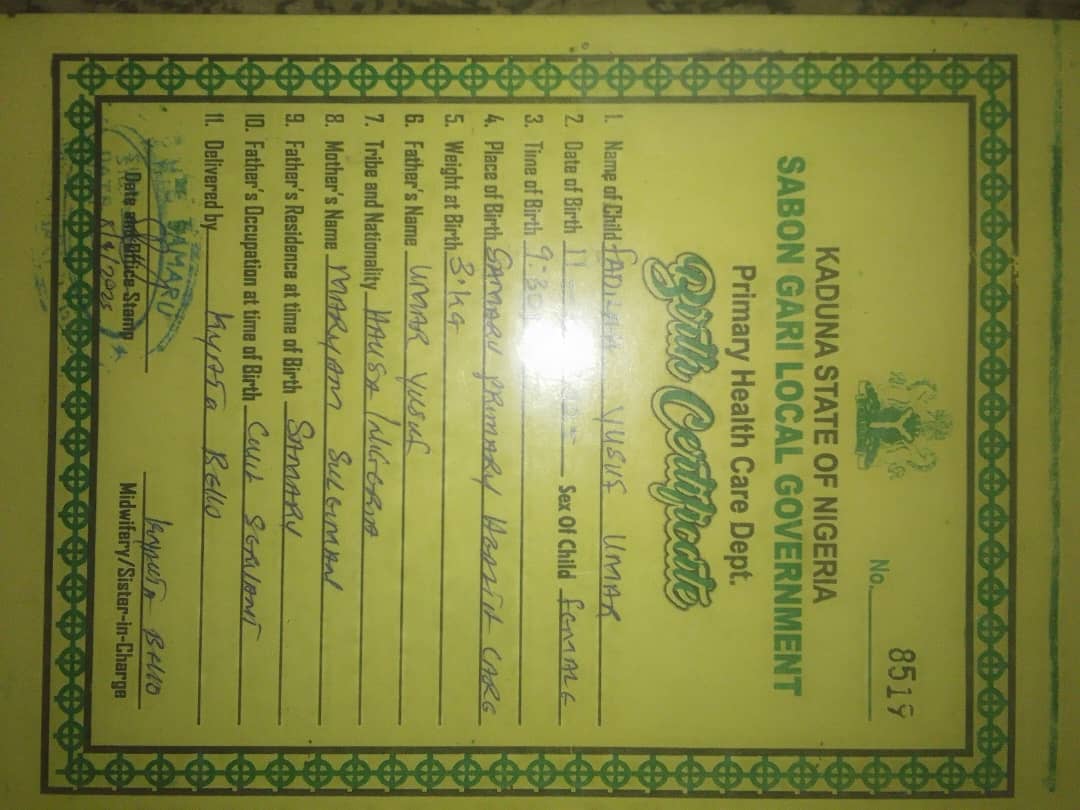 No. 8519
KADUNA STATE OF NIGERIA
SABON GARI LOCAL GOVERNMENT
Primary Health Care Dept.
Birth Certificate
1. Name of Child YUSUF UMAR
2. Date of Birth 11 Sex Of Child FEMALE
3. Time of Birth 9:30
4. Place of Birth SAMARU PRIMARY HEALTH CARE
5. Weight at Birth 3.kg
6. Father's Name UMAR YUSUF
7. Tribe and Nationality HAUSA / NIGERIA
8. Mother's Name MARYAM SULEIMAN
9. Father's Residence at time of Birth SAMARU
10. Father's Occupation at time of Birth CIVIL SERVANT
11. Delivered by BELLO
SAMARU
BELLO
Date and Office Stamp Midwifery/Sister-in-Charge